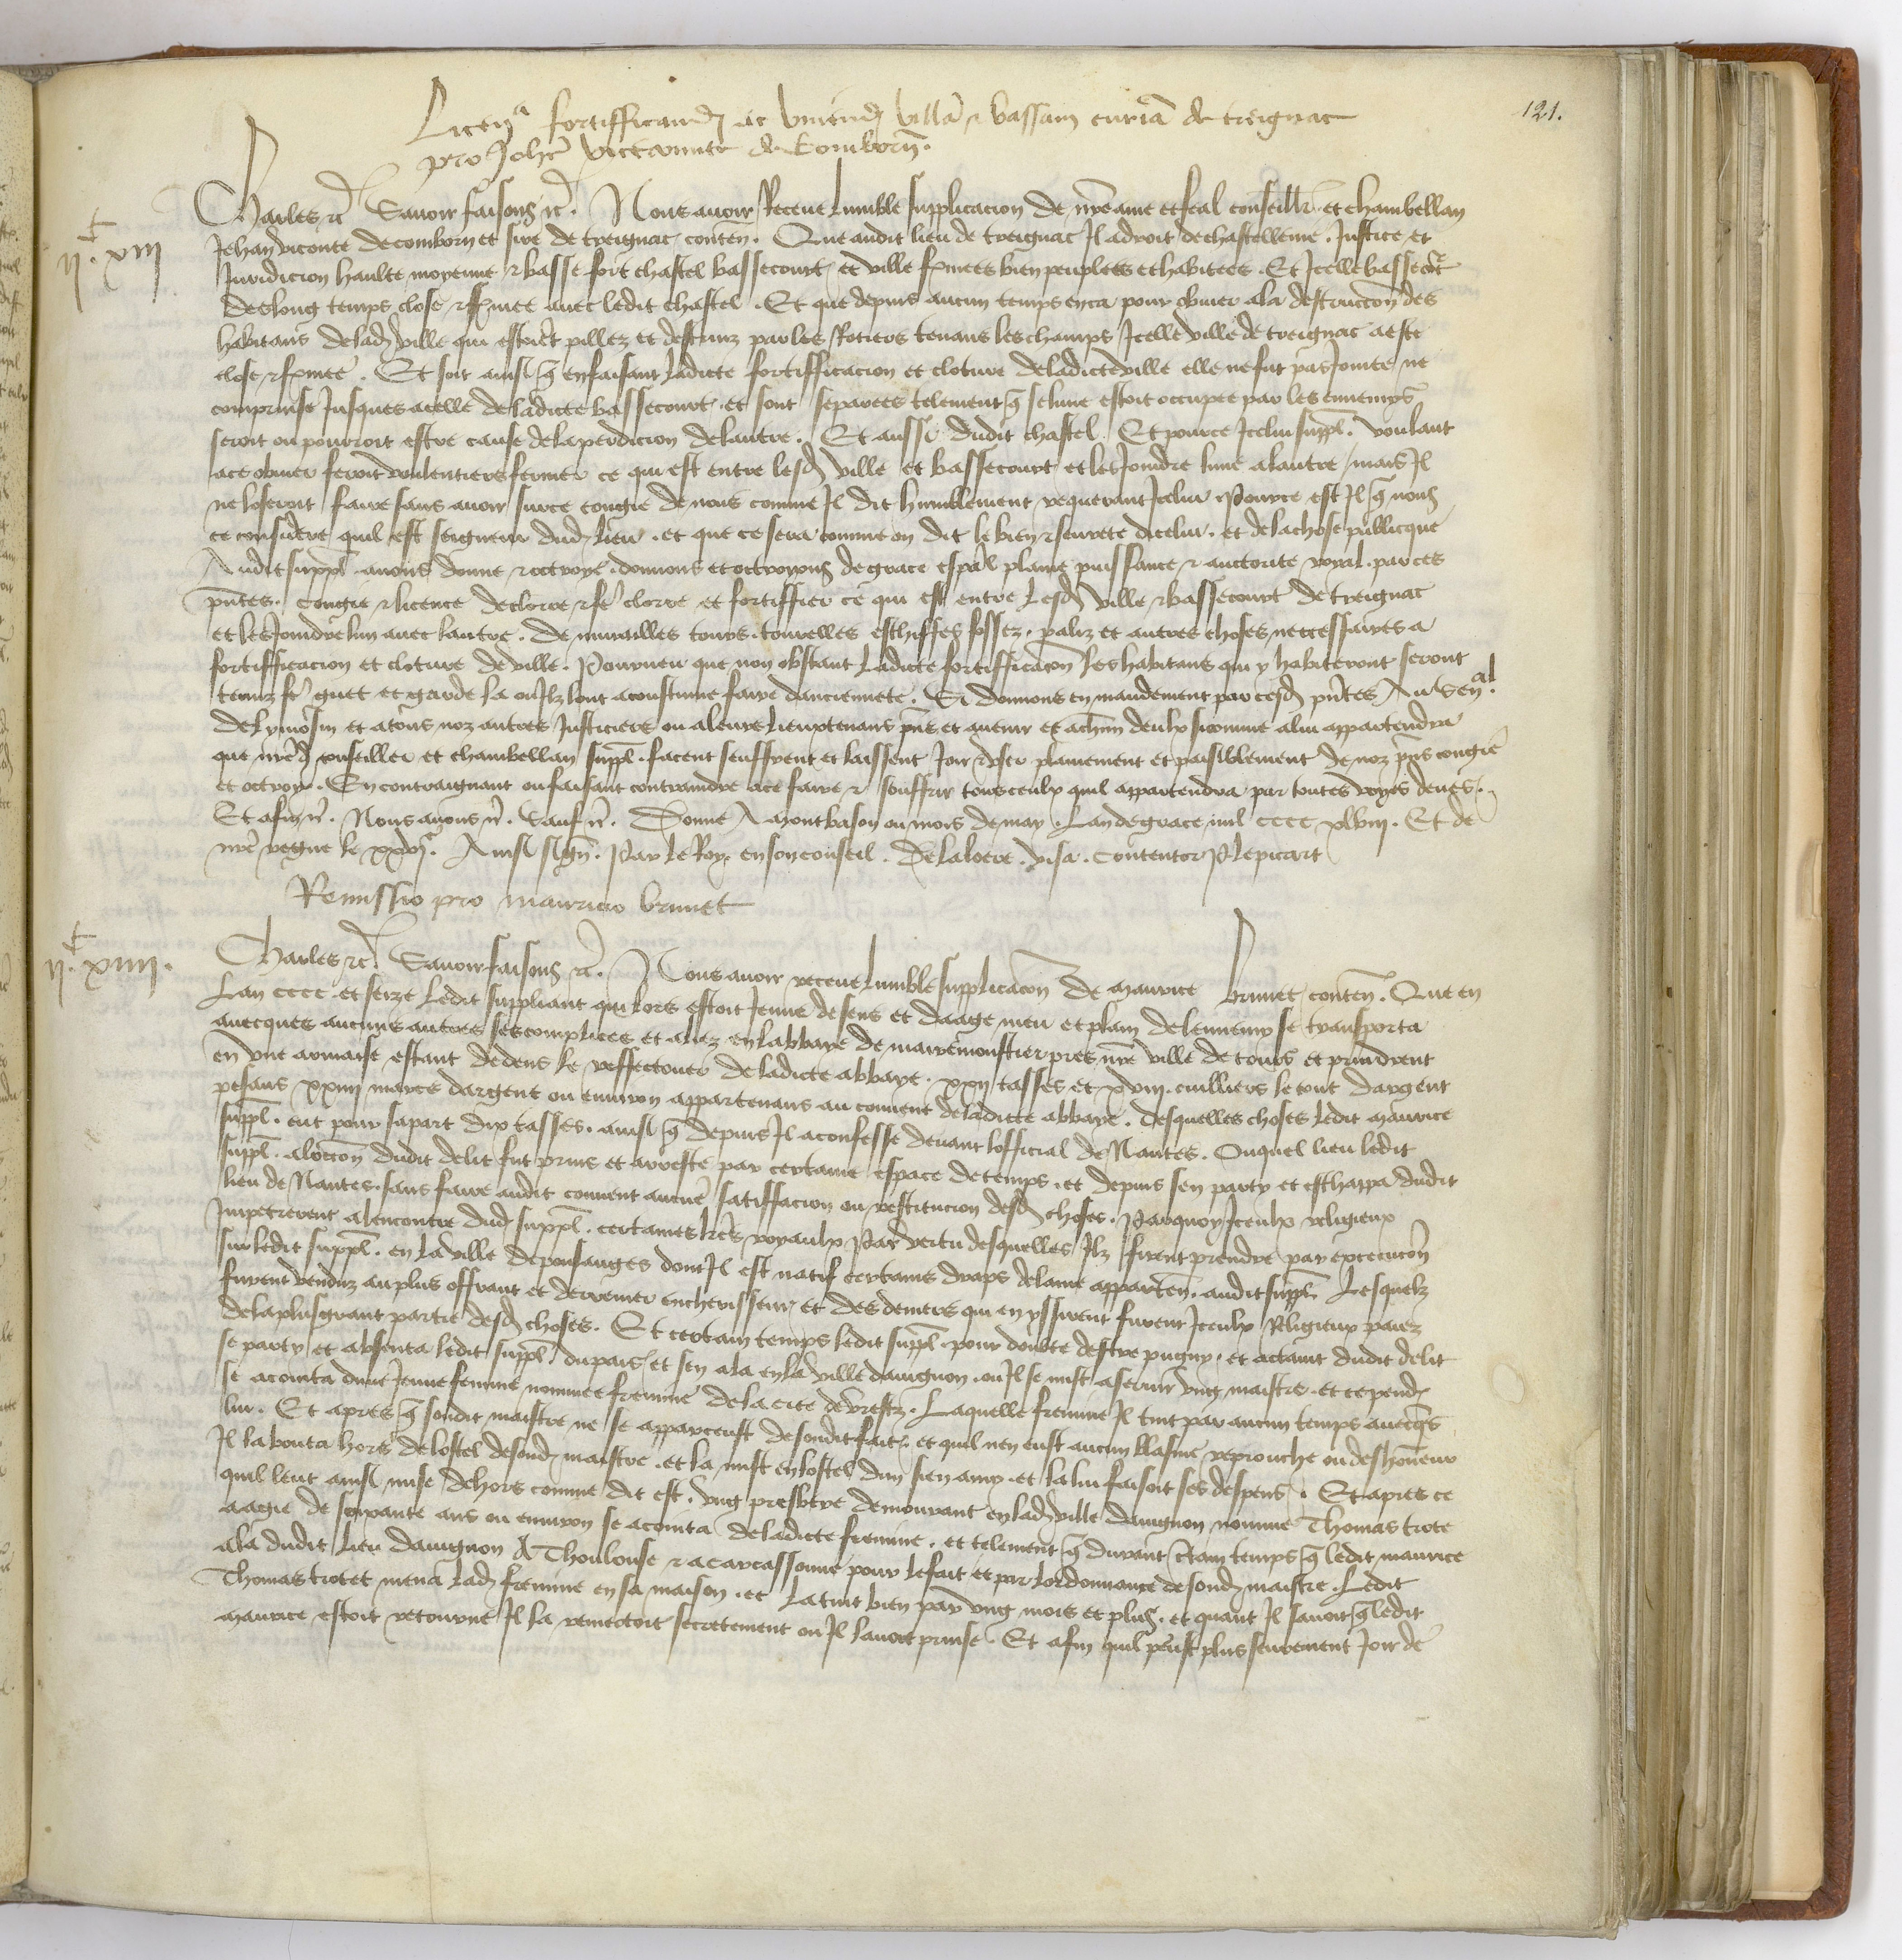 121.
Licen^a fortifficand ac Vniend villã ⁊ bassam curiã de treignac
pro Johẽ vicecomite de Comborñ.
II^c XIII
Charles ⁊c̃ Sauoir faisons ⁊c̃. Nous auoir Receue lumble supplicacion de nr̃e ame et feal conseillr̃ et chambellan
Jehan viconte de comborn et sire de treignac conteñ. Que audit lieu de treignac Il a droit de chastellenie. Justice et
Juridicion haulte moyenne ⁊ basse fort chastel bassecourt et ville fermees bien peuplees et habitees. Et Icelle bassecõt
de long temps close ⁊ fermee auec ledit chastel. Et que depuis aucun temps enca pour obuier ala destruccõn des
habitans de lad ville qui estoiẽt pillez et destruiz par les Rotiers tenans les champs Icelle ville de treignac a este
close ⁊ fermee. Et soit ainsi q̃ en faisant ladicte fortifficacion et cloture de ladicte ville elle ne fut pas Jointe ne
comprinse Jusques a celle de ladicte bassecourt. et sont separees telement q̃ se lune estoit occupee par les ennemys
seroit ou pourroit estre cause de la perdicion de lautre. Et aussi dudit chastel. Et pource Icelui suppl̃. voulant
a ce obuier feroit voulentiers fermer ce qui est entre lesd ville et bassecourt et les Joindre lune a lautre / mais Il
ne loseroit faire sans auoir surce congie de nous comme Il dit humblement requerant Icelui Pource est Il q̃ nous
ce considere quil est seigneur dud lieu. et que ce sera comme on dit le bien ⁊ seurete dicelui. et de la chose publicque
Audit suppl̃ auons donne ⁊ octroye donnons et octroyons de grace esp̃al plaine puissance ⁊ auctorite royal. par ces
pñtes. congie ⁊ licence de clorre ⁊ fẽ clorre et fortiffier ce qui est entre lesd ville ⁊ bassecourt de treignac
et les Joindre lun auec lautre. de murailles tours. tourelles eschiffes fossez. paliz et autres choses neccessaires a
fortifficacion et cloture de ville. Pourueu que non obstant ladicte fortifficacõn les habitans qui y habiteront seront
tenuz fẽ guet et garde la ou Ilz lont acoustume faire danciennete. Si donnons en mandement par cesd pñtes Au señ^al
de lymosin et a tous noz autres Justiciers ou a leurs lieuxtenans pñs et auenir et a chũn deulx si comme a lui appartendra
que nr̃ed conseiller et chambellan suppl̃. facent seuffrent et laissent Joir ⁊ vser plainement et paisiblement de noz pñs congie
et octroy. En contraignant ou faisant contraindre a ce faire ⁊ souffrir tous ceulx quil appartendra par toutes voyes deues.
Et afin ⁊c̃. Nous auons ⁊c̃. Sauf ⁊c̃. Donne A montbason ou mois de may Lan de grace mil cccc xlviii. Et de
nr̃e regne le xxvi^e. Ainsi signẽ. Par le Roy en son conseil. De la loere. Visa. Contentor P lepicart
Remissio pro mauricio brunet
II^c XIIII.
Charles ⁊c̃. Sauoir faisons ⁊c̃. Nous auoir receue lumble supplicacõn de maurice brunet conteñ. Que en
Lan cccc et seize ledit suppliant qui lors estoit Jeune de sens et daage meu et plain de lennemy se transporta
auecques aucuns autres ses complices et aliez en labbaye de mairemoustier pres nr̃e ville de tours et prindrent
en vne armaise estant dedens le reffectouer de ladicte abbaye. xxii tasses et xviii. cuilliers le tout dargent
pesans xxiiii marcs dargent ou enuiron appartenans au conuent de ladicte abbaye. desquelles choses ledit maurice
suppl̃. eut pour sa part dix tasses. ainsi q̃ depuis Il a confesse deuant lofficial de Nantes. Ouquel lieu ledit
suppl̃. aloccõn dudit delit fut prins et arreste par certaine espace de temps. et depuis sen party et eschappa dudit
lieu de Nantes. sans faire audit conuent aucuẽ satiffacion ou restitucion desd choses. Parquoy Iceulx religieux
Impetrerent alencontre dud suppl̃. certaines lr̃es royaulx Par vertu desquelles Ilz firent prendre par execucõn
sur ledit suppl̃. en la ville de pousauges dont Il est natif certains draps de laine apparteñ. audit suppl̃. Lesquelz
furent venduz au plus offrant et derrenier encherisseur et des deniers qui en yssirent furent Iceulx Religieux paiez
de la plus grant partie desd choses. Et certain temps ledit suppl̃. pour doubte destre pugny. et actaint dudit delit
se party et absenta ledit suppl̃. du pais et sen ala en la ville dauignon. ou Il se mist a seruir vng maistre. et ce pend
se acointa dune Jeune femme nommee fremine de la cite de brestz. Laquelle fremine Il tint par aucun temps auecq̃s
lui. Et apres q̃ sondit maistre ne se apparceust de sondit fait. et quil nen eust aucun blasme reprouche ou deshonneur
Il la bouta hors de lostel de sond maistre. et la mist en lostel dun sien amy. et la lui faisoit ses despens. Et apres ce
quil leut ainsi mise dehors comme dit est. vng presbtre demourant en lad ville dauignon nomme Thomas trote
aagie de soixante ans ou enuiron se acointa de ladicte fremine. et telement q̃ durant c̃tain temps q̃ ledit maurice
ala dudit lieu dauignon A Thoulouse ⁊ a carcassonne pour le fait et par lordonnance de sond maistre. Ledit
Thomas trotet mena lad fremine en sa maison. et la tint bien par vng mois et plus. et quant Il sauoit q̃ ledit
maurice estoit retourne Il la remectoit secretement ou Il lauoit prinse. Et afin quil peust plus seurement Joir de